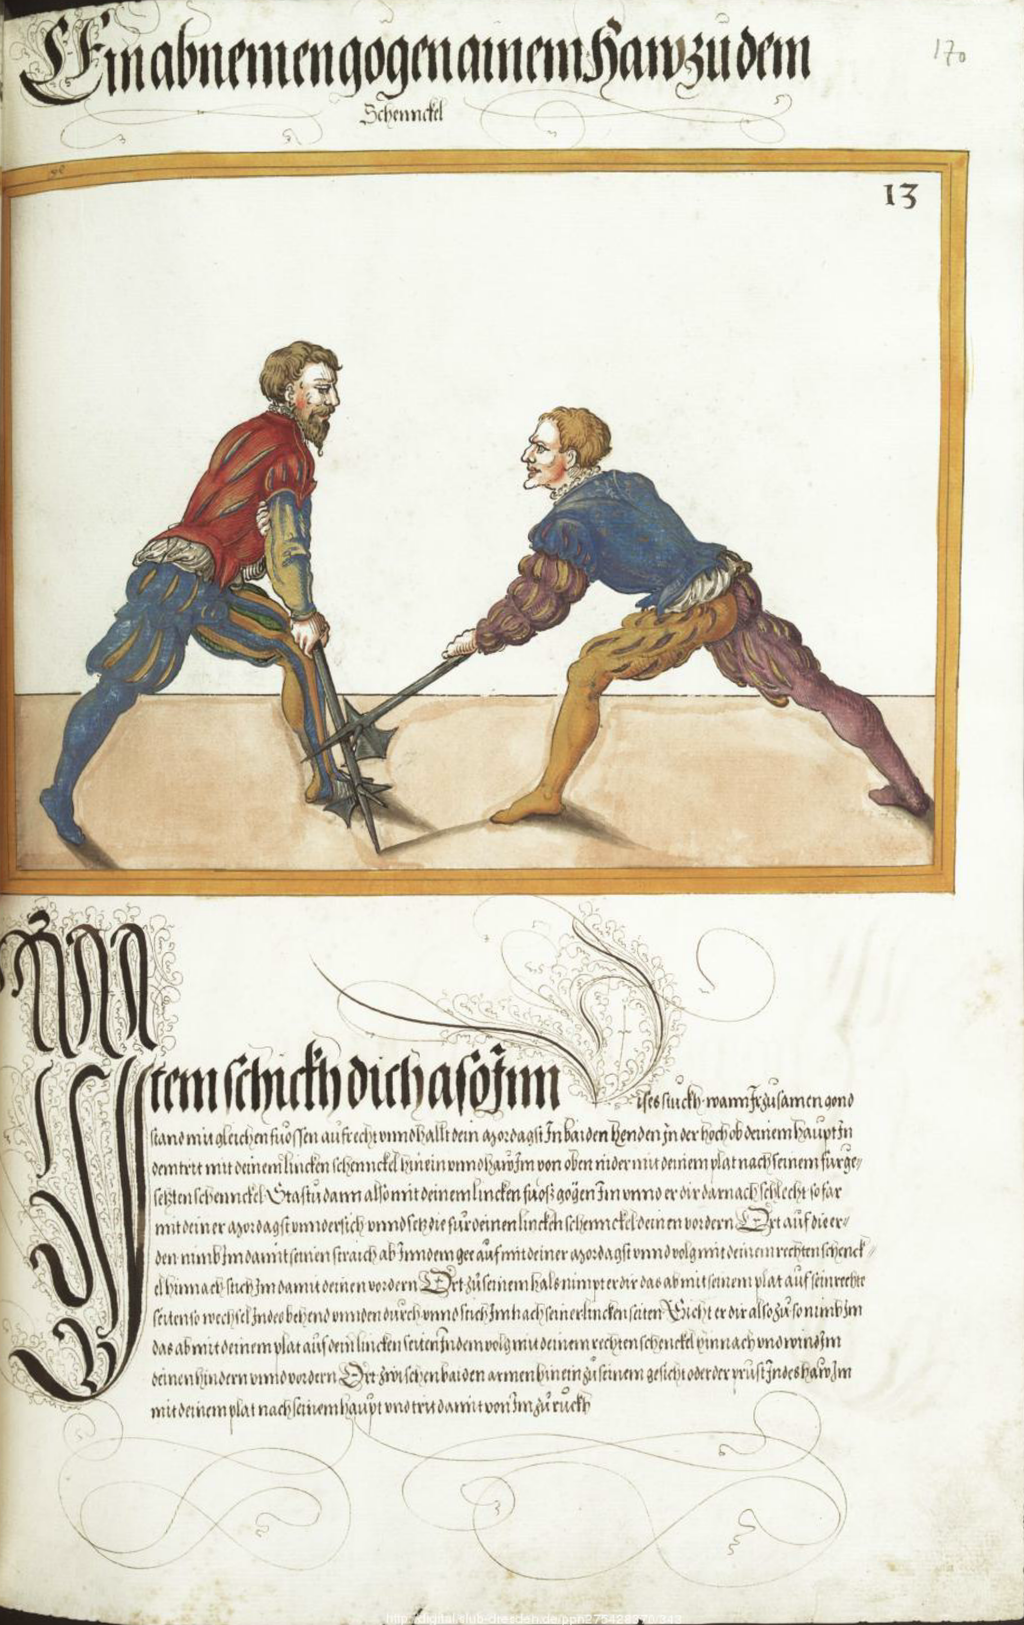 170
Ein abnemen gögen ainem Haw zu dem
Schennckel
13
Item schickh dich also Inn dises stuckh wann Ir zusamen gond
stand mit gleichen fuossen aufrecht vnnd hallt dein mordagst In baiden henden In der hoch ob deinem haupt In
dem trit mit deinem lincken schennckel hinein vnnd haw Im von oben nider mit deinem plat nach seinem furge-
setzten schennckel Stastu dann also mit deinem lincken fuoss gögen Im vnnd er dir darnach schlecht so far
mit deiner mordagst vnndersich vnnd setz die fur deinen lincken schennckel deinen vordern Ort auf die er-
den nimb Im damit seinen straich ab Inn dem gee auf mit deiner mordagst vnnd volg mit deinem rechten schenck-
el hinnach stich Im damit deinen vordern Ort zu seinem hals nimpt er dir das ab mit seinem plat auf sein rechte
seiten so wechsel Indes behend vnnden durch vnnd stich Im nach seiner lincken seiten Sticht er dir also zu so nimb Im
das ab mit deinem plat auf dein lincken seiten Indem volg mit deinem rechten schenckel hinnach vnd wind Im
deinen hindern vnnd vordern Ort zwischen baiden armen hinein zu seinem gesicht oder der prust Indes haw Im
mit deinem plat nach seinem haupt vnd trit damit von Im zu ruckh